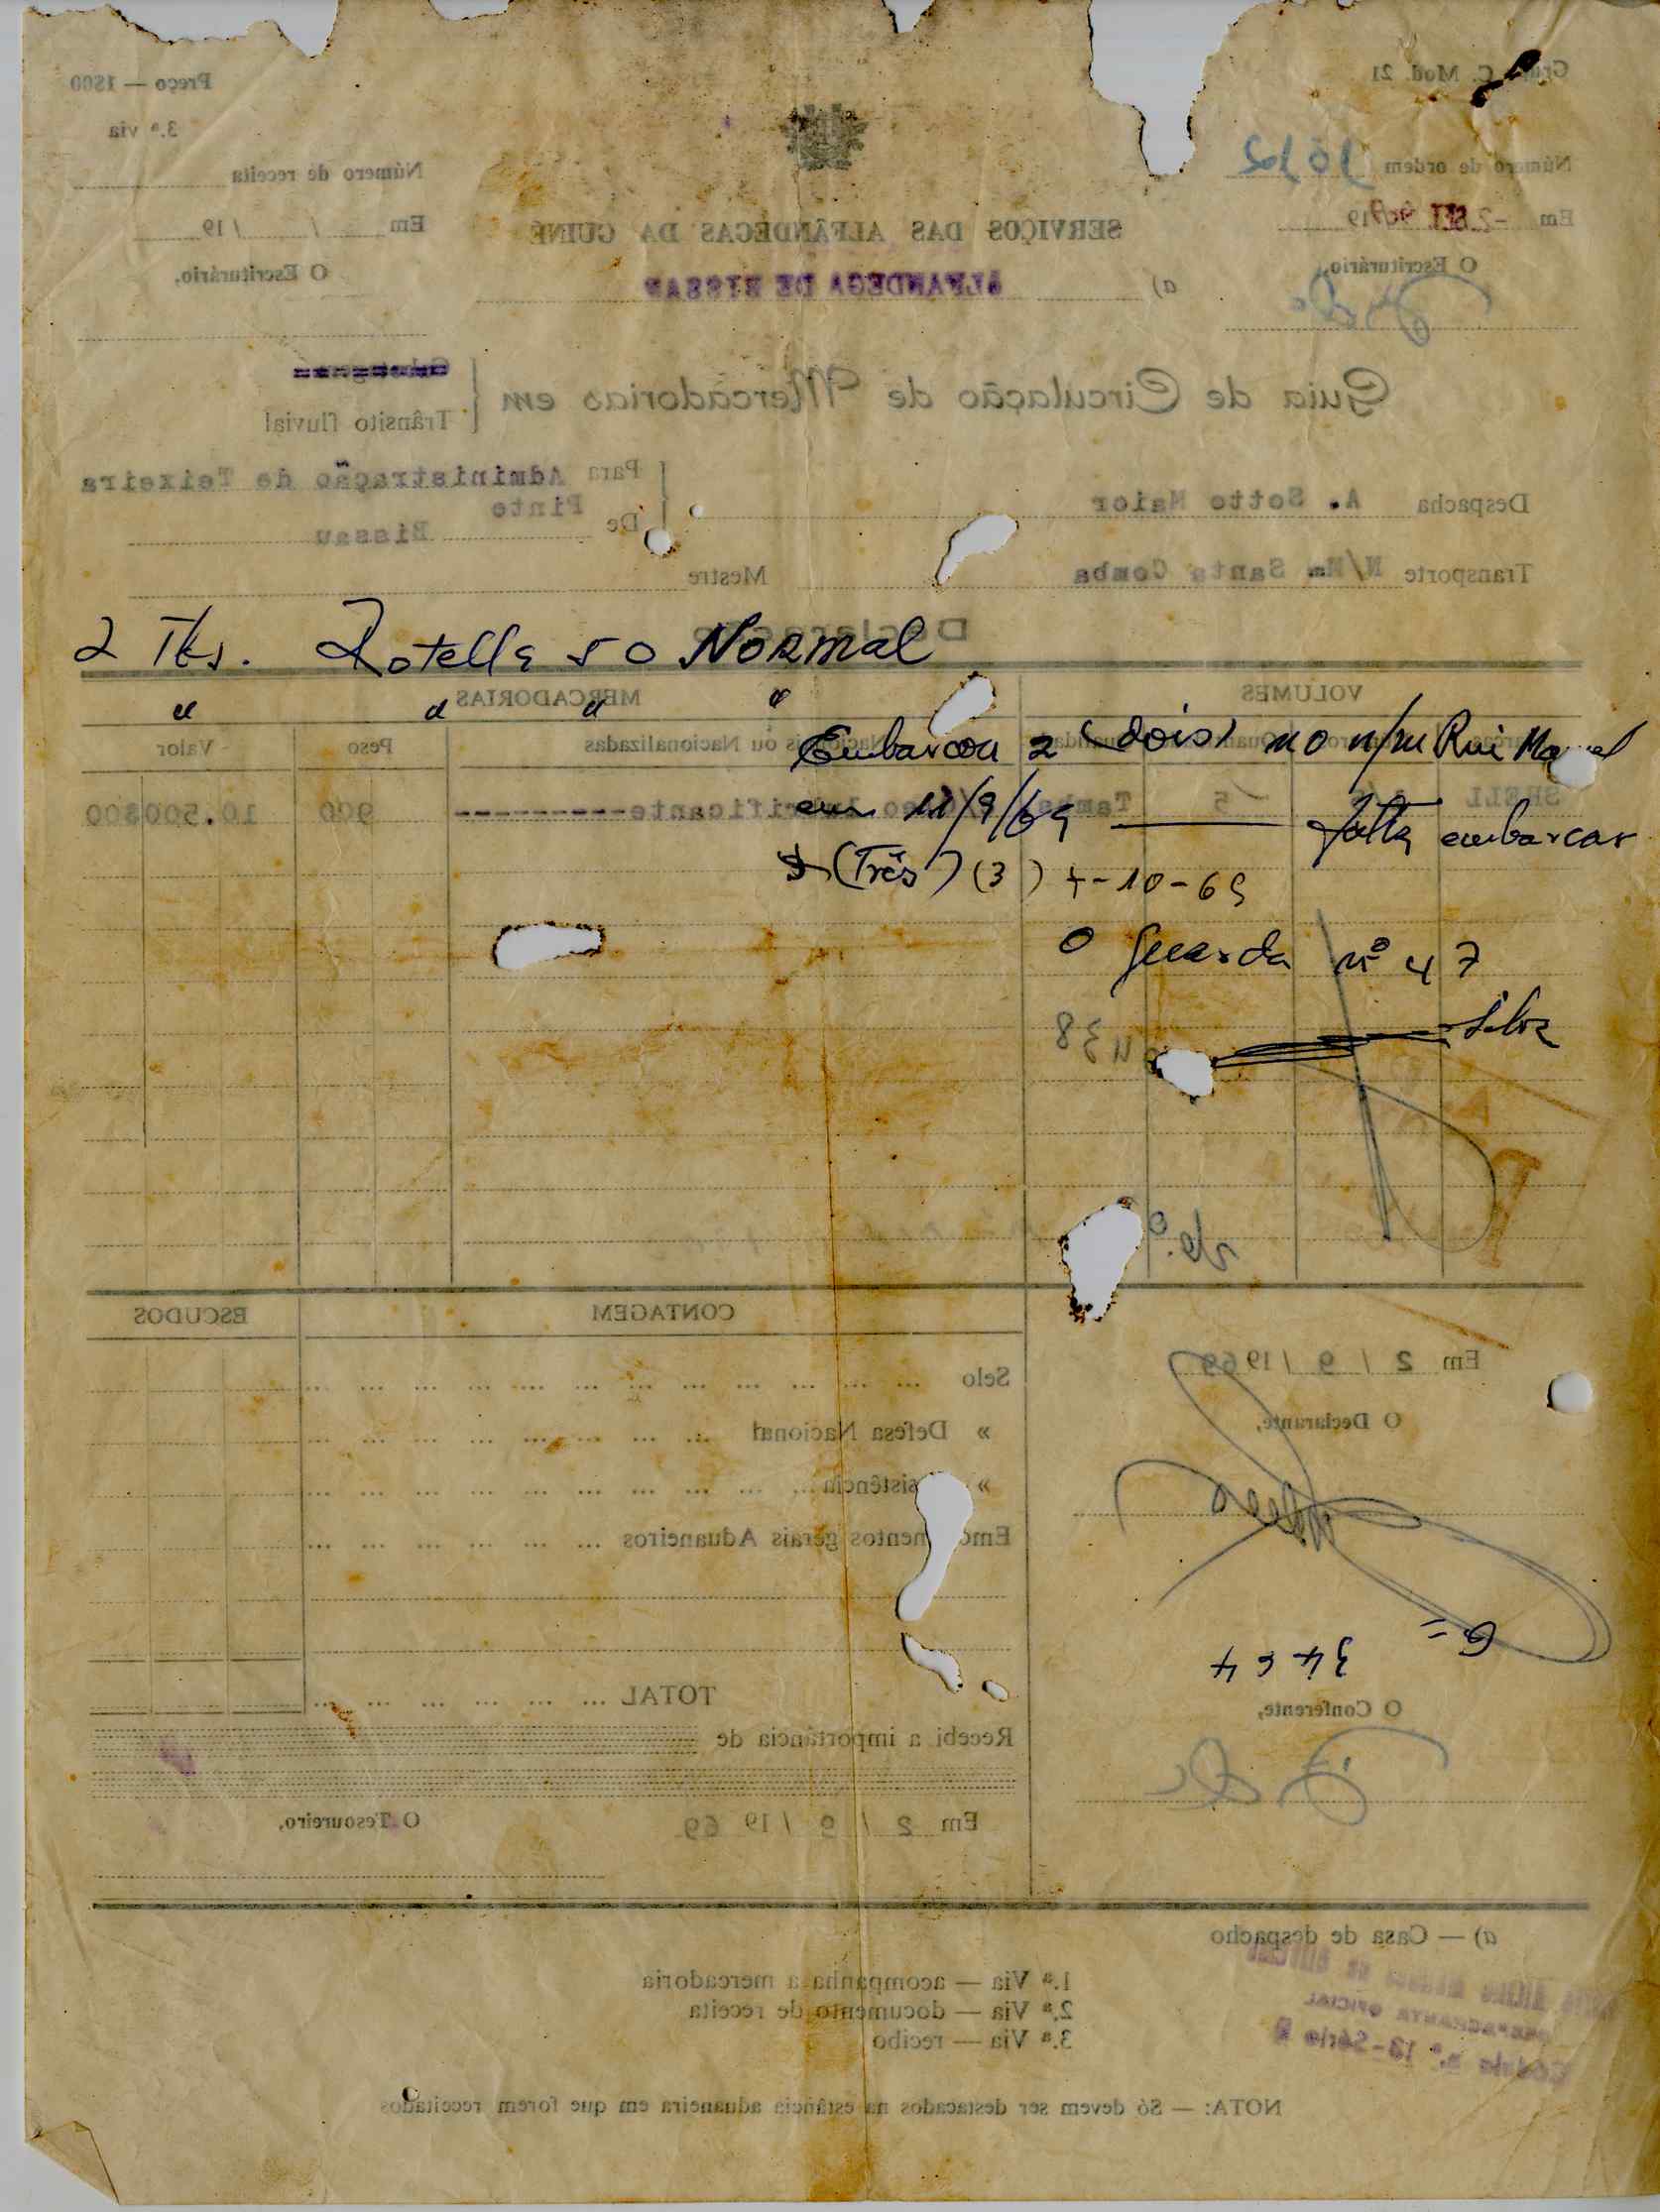 Preço — 1$00
Mod. 21
3.ª via
Número de receita
Número de ordem
Em / / 19
Em -2. SET. 1969
SERVIÇOS DAS ALFÂNDEGAS DA GUINÉ
O Escriturário,
O Escriturário,
a) ALFANDEGA DE BISSAU
Guia de Circulação de Mercadorias em
Trânsito fluvial
Despacha A. Sotto Maior
Para Administração de Teixeira
Pinto
De Bissau
Transporte N/Mm Santa Comba
Mestre
Declaração
2 Tbs. Rotella 50 Normal
VOLUMES
MERCADORIAS
" " " "
Embarcou 2 (dois) no n/m Rui Ma el
Nacionais ou Nacionalizadas
Peso
Valor
SHELL 5 Tambores Óleo Lubrificante---------- 900 10.500$00
em 11/9/69 — falta embarcar
(Três) (3) +-10-69
O Guarda nº 47
Silva
CONTAGEM
ESCUDOS
Selo
» Defesa Nacional
» sistência
Emo mentos gerais Aduaneiros
TOTAL
Recebi a importância de
Em 2 / 9 / 19 69
O Tesoureiro,
Em 2 / 9 / 1969
O Declarante,
O Conferente,
a) — Casa de despacho
1.ª Via — acompanha a mercadoria
2.ª Via — documento de receita
3.ª Via — recibo
DESPACHANTE OFICIAL
Cédula n.º 13-Série B
NOTA: — Só devem ser destacados na estância aduaneira em que forem receitados